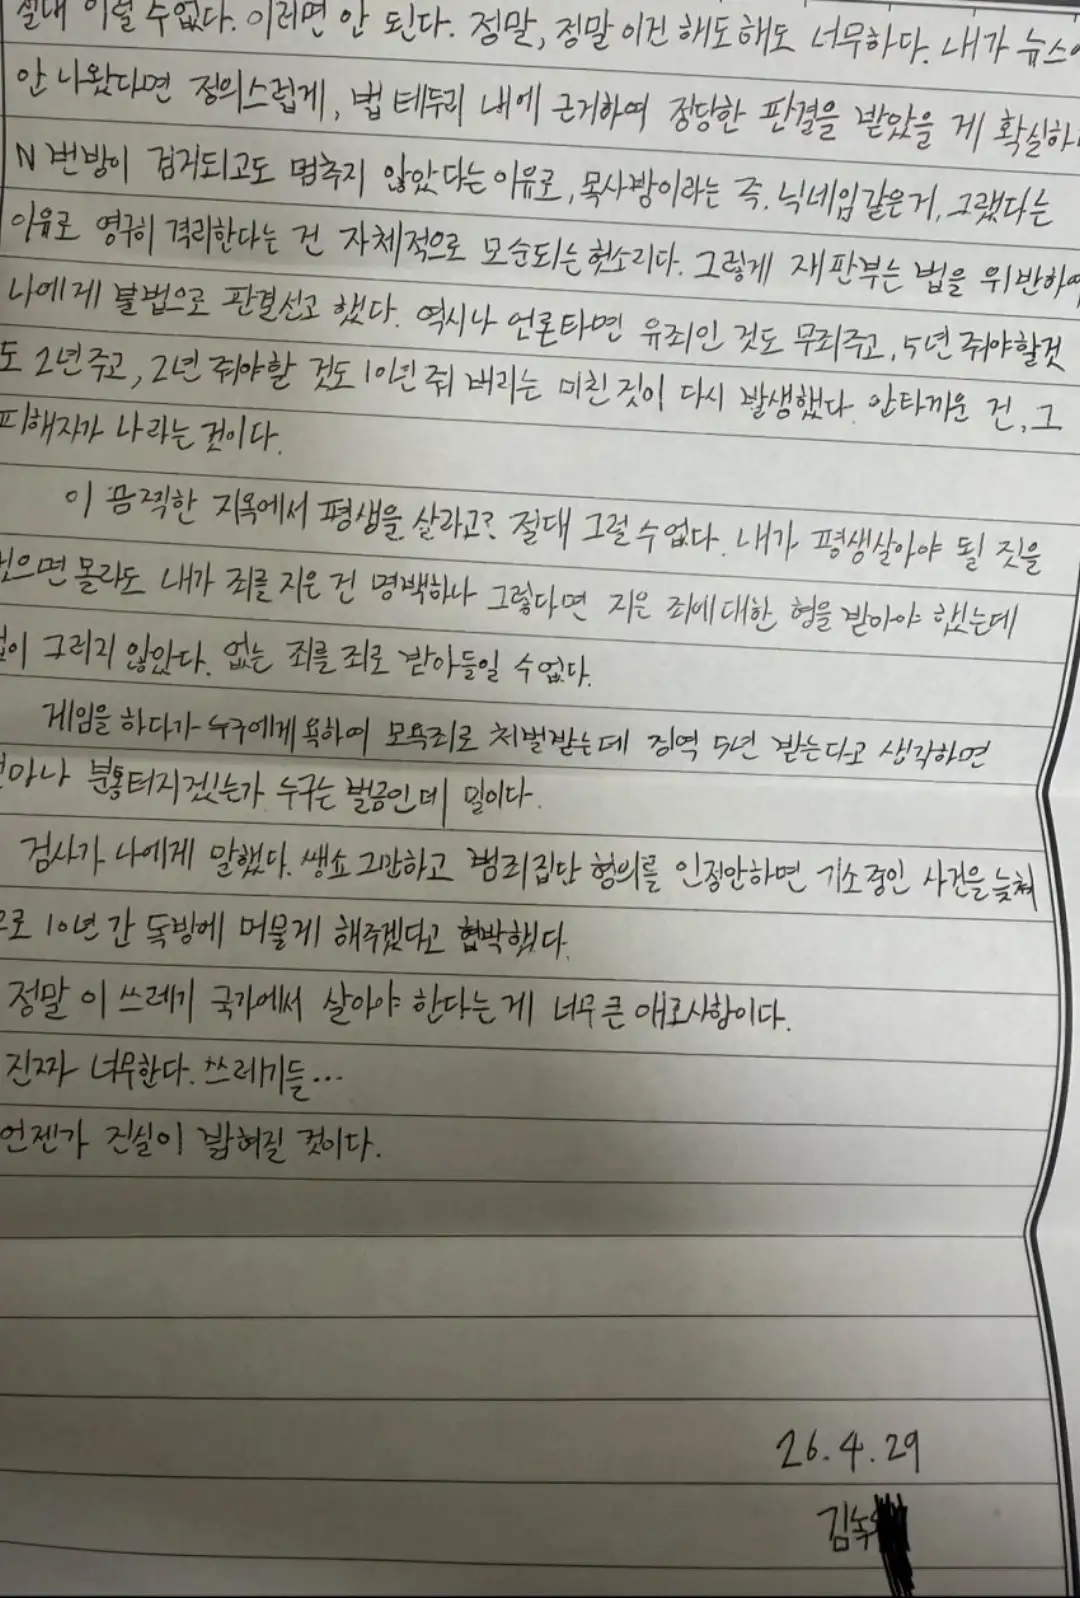 절대 이럴 수 없다. 이러면 안 된다. 정말, 정말 이건 해도해도 너무하다. 내가 뉴스에
안 나왔다면 정의스럽게, 법 테두리 내에 근거하여 정당한 판결을 받았을 게 확실하
N번방이 검거되고도 멈추지 않았다는 이유로, 목사방이라는 즉, 닉네임같은거, 그랬다는
이유로 영구히 격리한다는 건 자체적으로 모순되는 헛소리다. 그렇게 재판부는 법을 위반하여
나에게 불법으로 판결선고 했다. 역시나 언론타면 유죄인 것도 무죄주고, 5년 줘야할것
도 2년주고, 2년 줘야할 것도 10년 줘 버리는 미친 짓이 다시 발생했다. 안타까운 건, 그
피해자가 나라는 것이다.
이 끔찍한 지옥에서 평생을 살라고? 절대 그럴 수 없다. 내가 평생살아야 될 짓을
했으면 몰라도 내가 죄를 지은 건 명백하나 그렇다면 지은 죄에 대한 형을 받아야 했는데
법이 그러지 않았다. 없는 죄를 죄로 받아들일 수 없다.
게임을 하다가 누구에게 욕하여 모욕죄로 처벌받는데 징역 5년 받는다고 생각하면
얼마나 분통터지겠는가 누구는 벌금인데 말이다.
검사가 나에게 말했다. 쌩쇼 그만하고 범죄집단 혐의를 인정안하면 기소중인 사건을 늦춰
으로 10년 간 독방에 머물게 해주겠다고 협박했다.
정말 이 쓰레기 국가에서 살아야 한다는 게 너무 큰 애로사항이다.
진짜 너무한다. 쓰레기들...
언젠가 진실이 밝혀질 것이다.
26.4.29
김녹